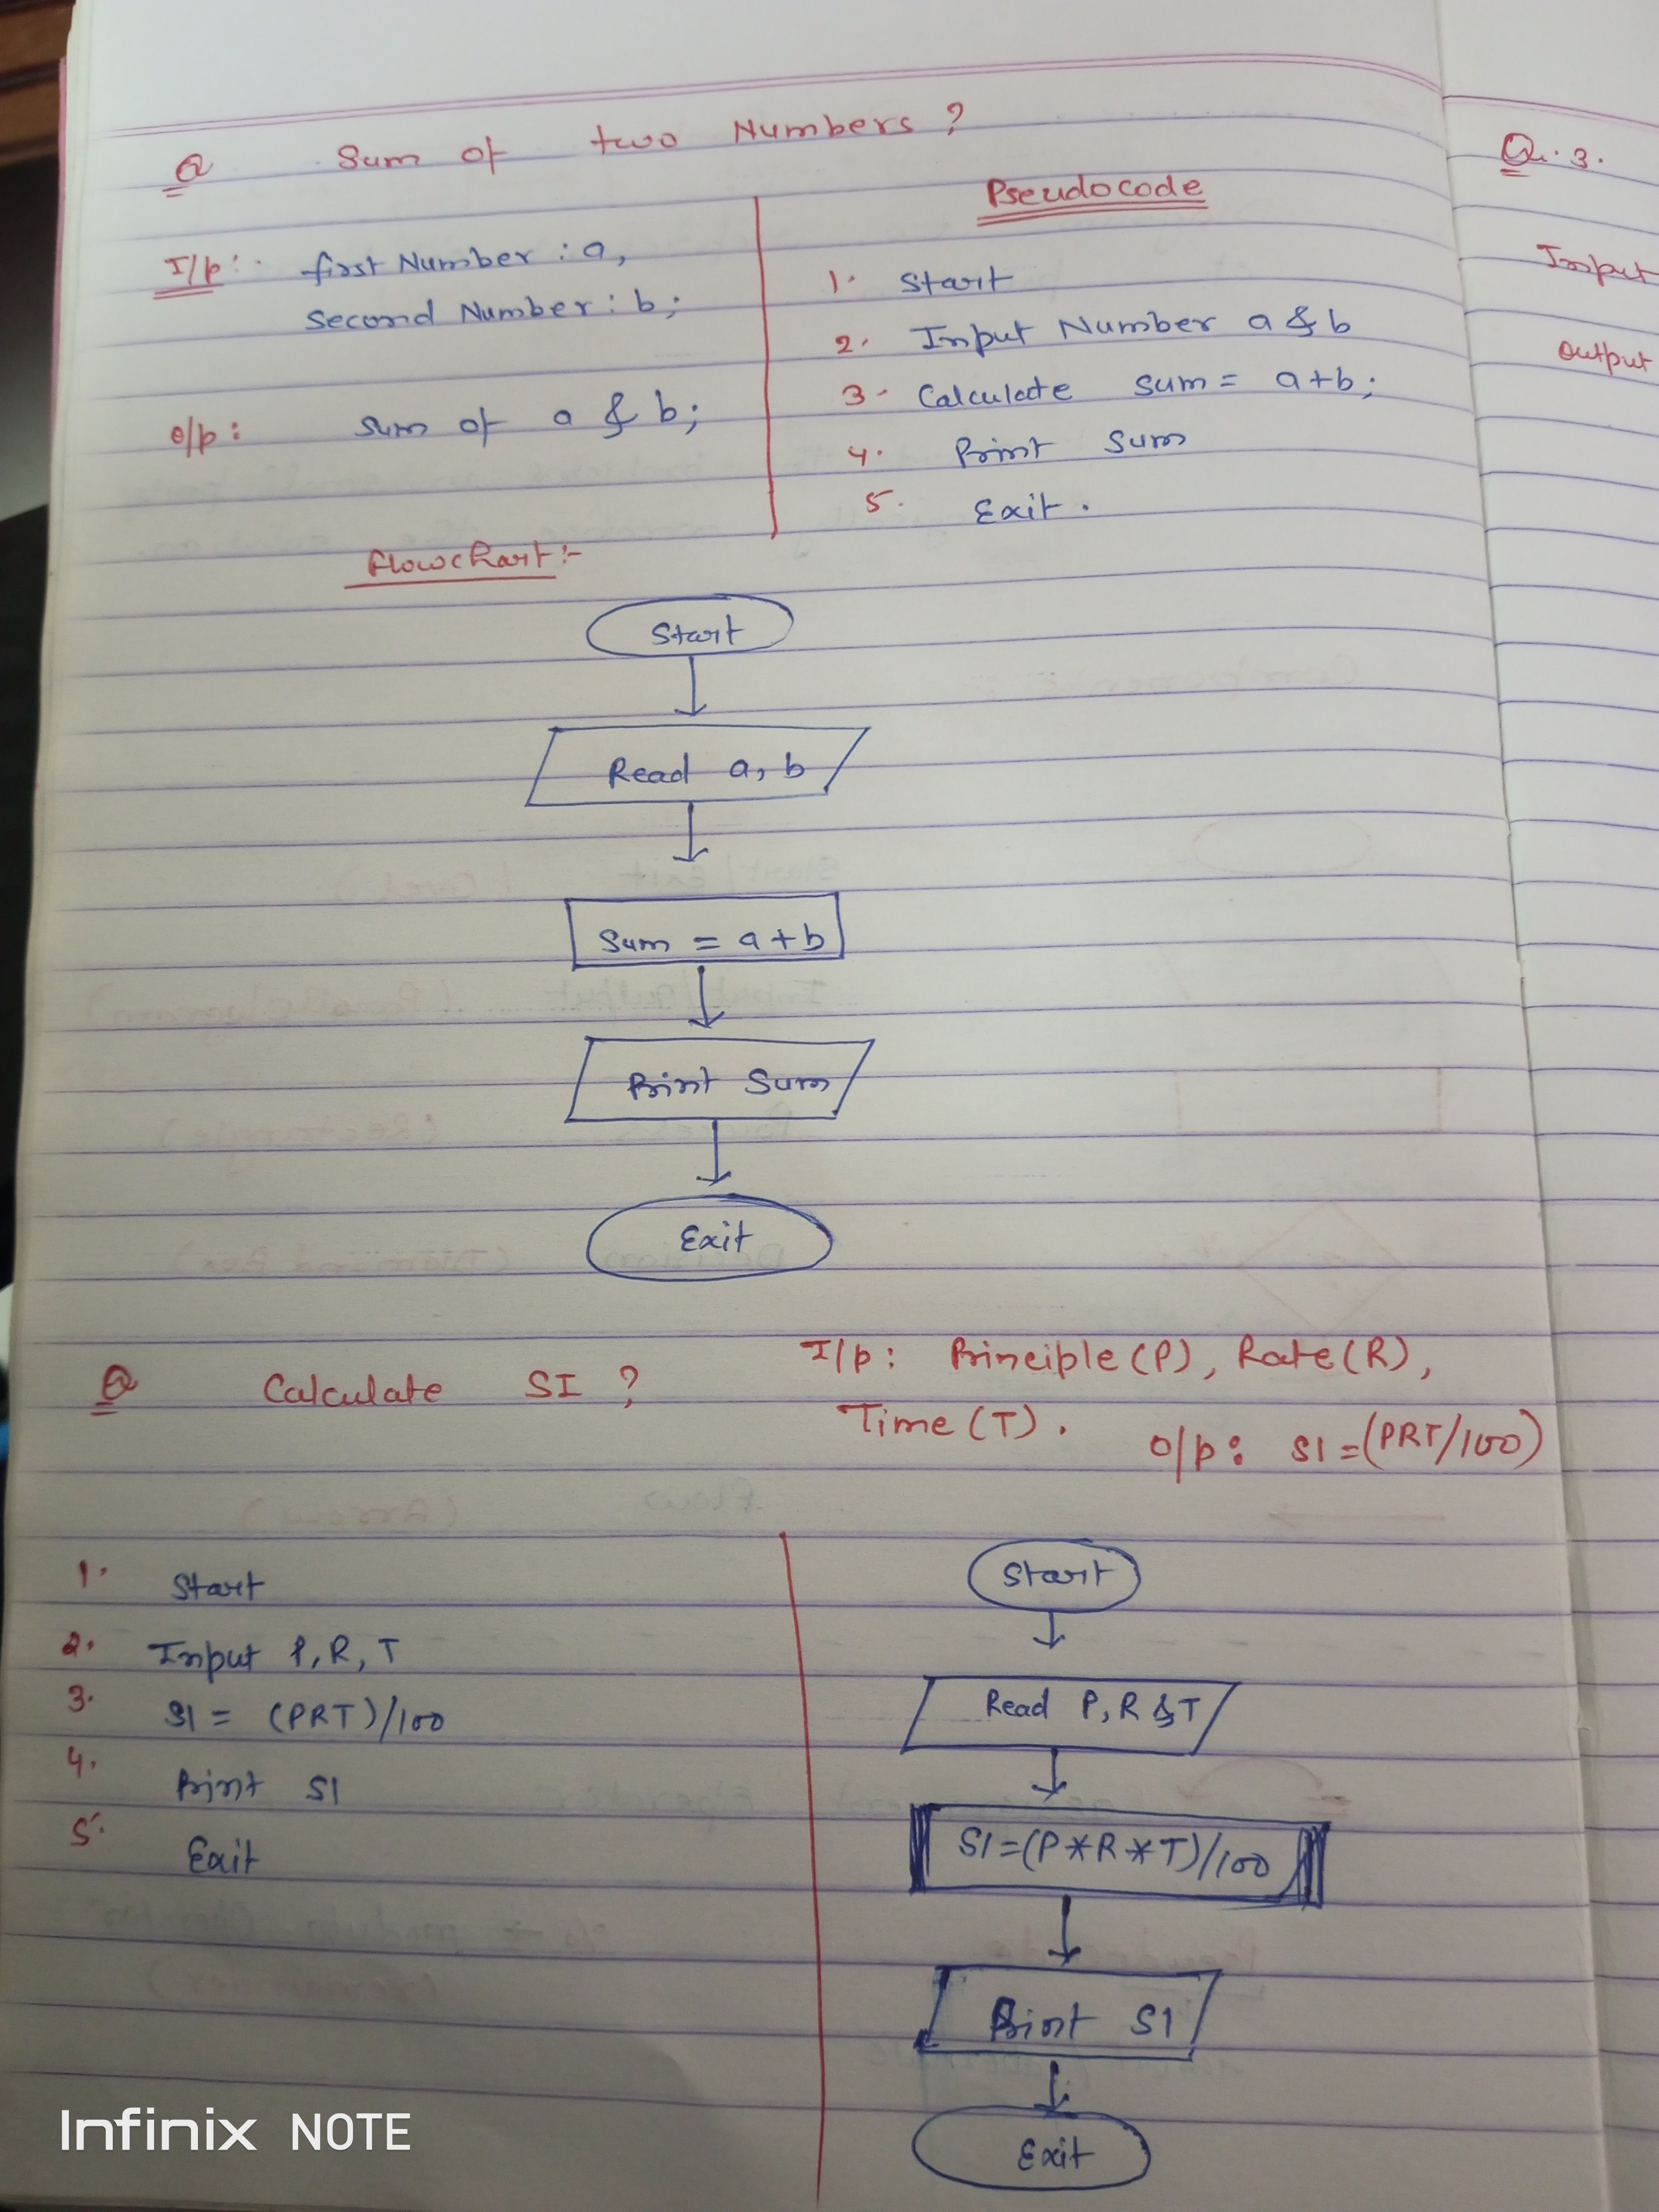 Q Sum of two Numbers ?
I/p : first Number : a,
Second Number : b ;
o/p : Sum of a & b;
Pseudocode
1. Start
2. Input Number a & b
3. Calculate sum = a+b ;
4. Print Sum
5. Exit .
flowchart :-
Start
Read a, b
Sum = a+b
Print Sum
Exit
Q Calculate SI ?
I/p : Principle (P), Rate (R),
Time (T) . o/p : SI = (PRT/100)
1. Start
2. Input P, R, T
3. SI = (PRT)/100
4. Print SI
5. Exit
Start
Read P, R & T
SI = (P*R*T)/100
Print SI
Exit
Q. 3.
Input
Output
Infinix NOTE